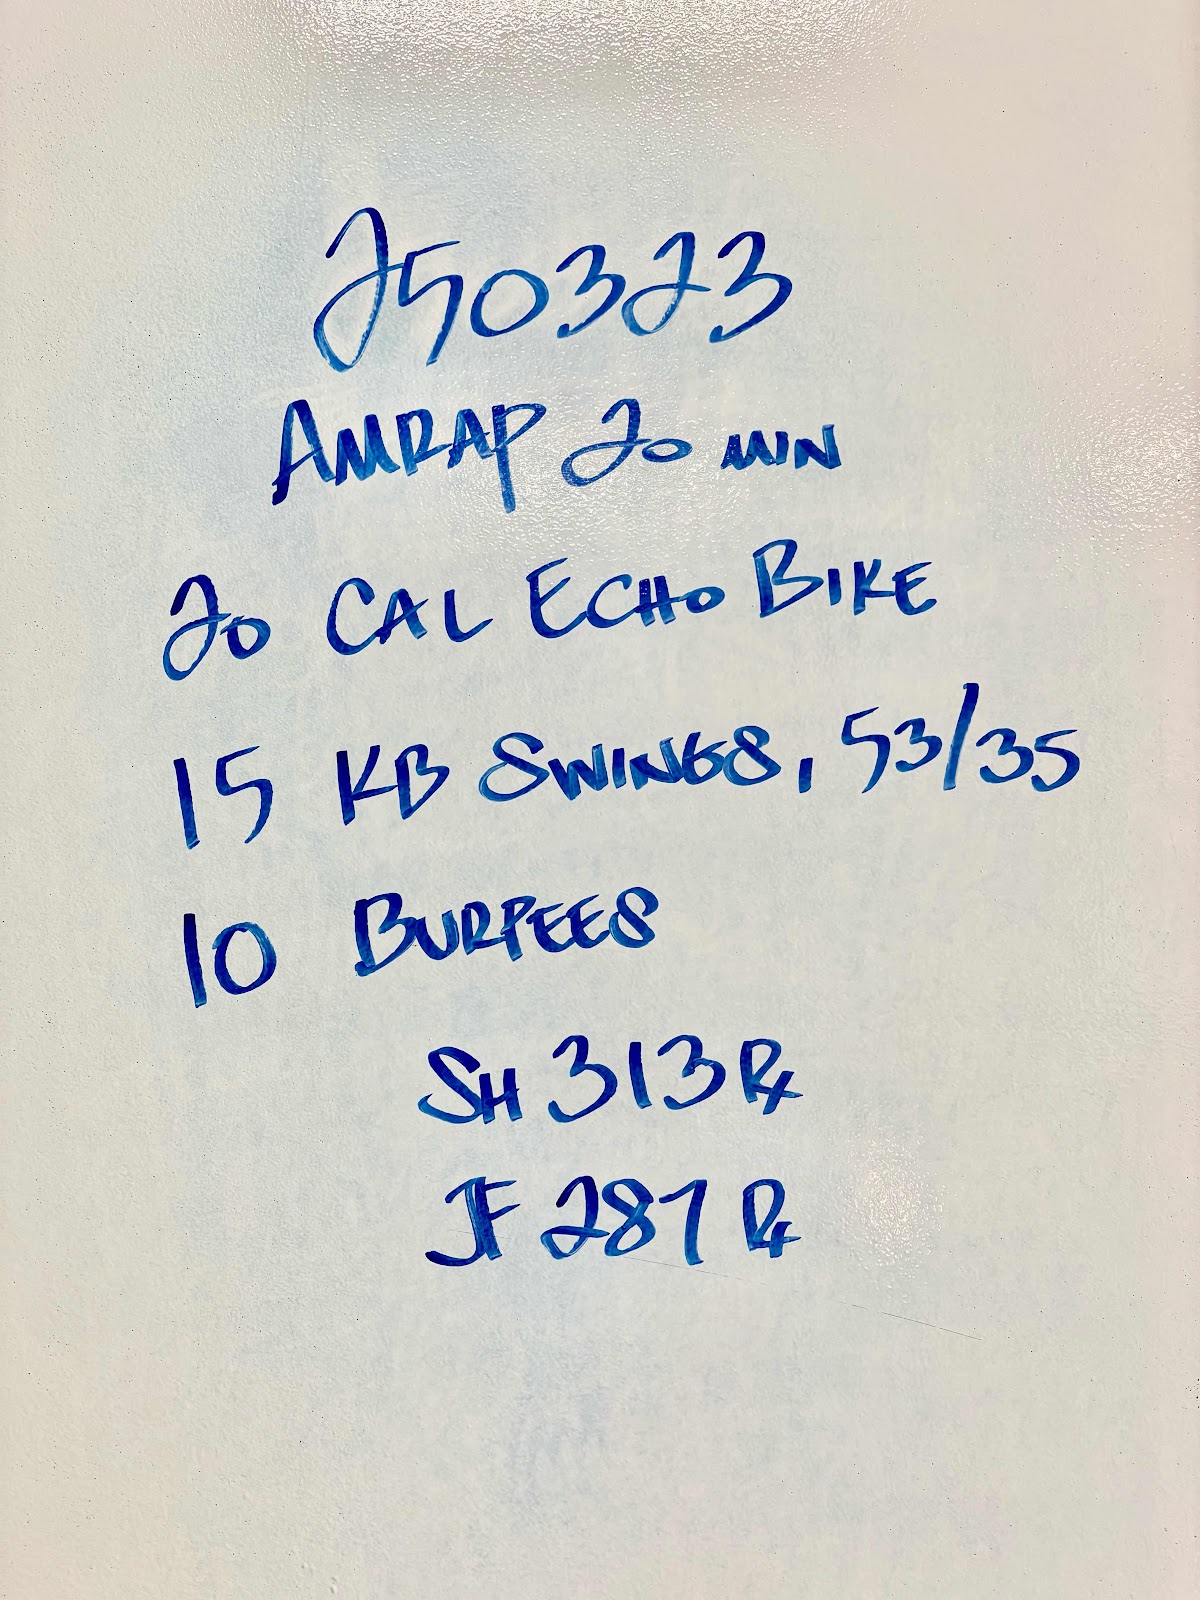 250323
AMRAP 20 MIN
20 CAL ECHO BIKE
15 KB SWINGS, 53/35
10 BURPEES
SH 313 Rx
JF 287 Rx